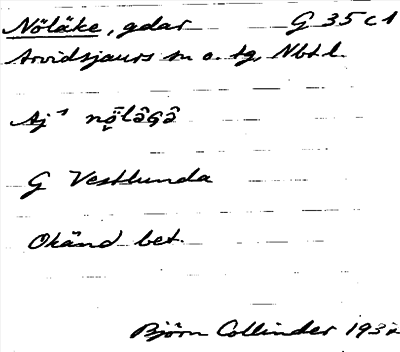 Nöläke, gdar G 35 c 1
Arvidsjaurs sn o. tg, Nbtl.
Aj⁻¹ nȫ̬lāGā
G Vestlunda
Okänd bet.
Björn Collinder 1932